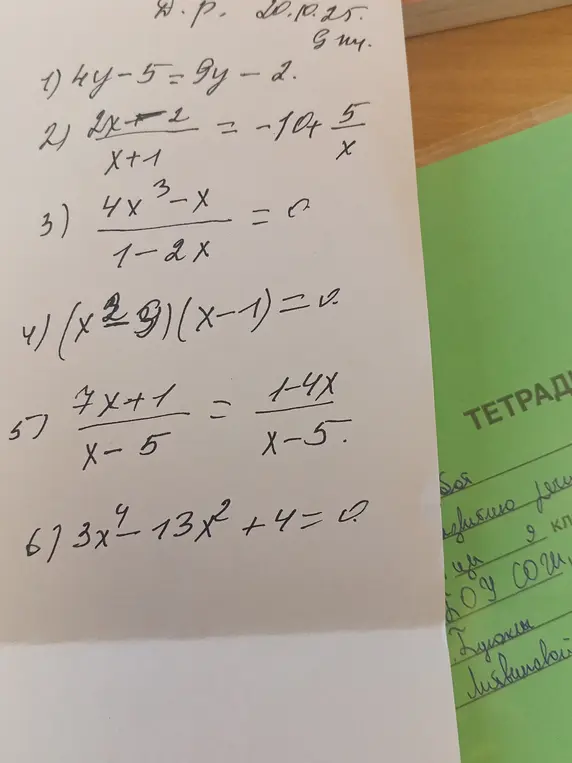 Д. р. 20.10.25.
9 кл.
1) 4y - 5 = 9y - 2.
2) (2x - 2)/(x + 1) = -10 + 5/x
3) (4x³ - x)/(1 - 2x) = 0
4) (x² - 9)(x - 1) = 0.
5) (7x + 1)/(x - 5) = (1 - 4x)/(x - 5).
6) 3x⁴ - 13x² + 4 = 0.
ТЕТРАД
бот
9 кл
БОУ СОШ